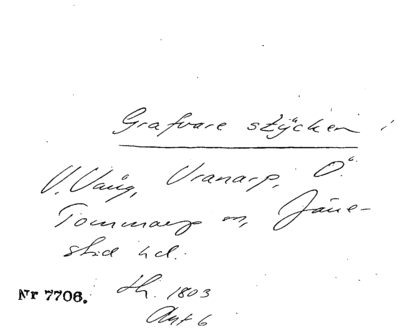 Grafvare stycken i
V. Vång, Vranarp, Ö.
Tommarp m, Järre-
stad hd.
Nr 7706.
th. 1803
Akt 6